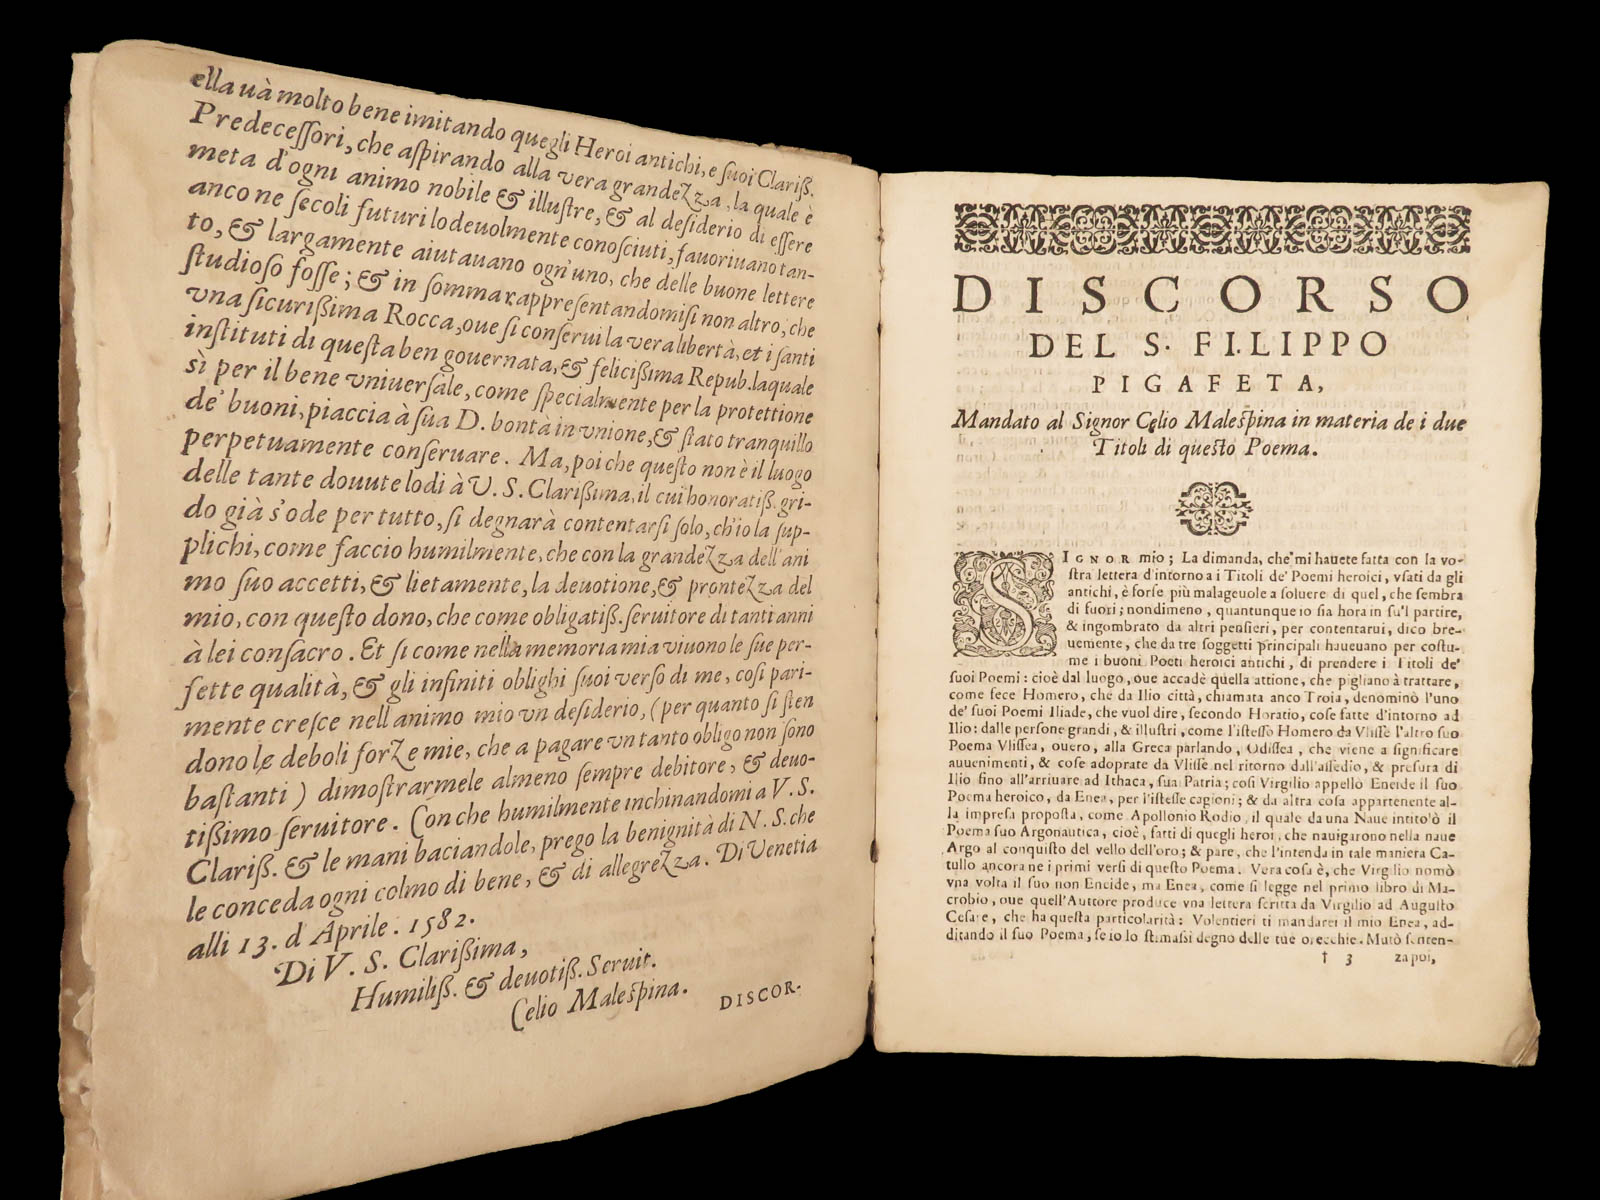 ella uà molto bene imitando quegli Heroi antichi, e suoi Clariß.
Predecessori, che aspirando alla vera grandezza, la quale è
meta d'ogni animo nobile & illustre, & al desiderio di essere
anco ne secoli futuri lodeuolmente conosciuti, fauoriuano tan-
to, & largamente aiutauano ogn'uno, che delle buone lettere
studioso fosse; & in somma rappresentandomisi non altro, che
vna sicurißima Rocca, oue si conserui la vera libertà, et i santi
instituti di questa ben gouernata, & felicißima Repub. laquale
sì per il bene vniuersale, come specialmente per la protettione
de' buoni, piaccia à sua D. bontà in vnione, & stato tranquillo
perpetuamente conseruare. Ma, poi che questo non è il luogo
delle tante douute lodi à V. S. Clarißima, il cui honoratiß. gri-
do già s'ode per tutto, si degnarà contentarsi solo, ch'io la sup-
plichi, come faccio humilmente, che con la grandezza dell'ani
mo suo accetti, & lietamente, la deuotione, & prontezza del
mio, con questo dono, che come obligatiß. seruitore di tanti anni
à lei consacro. Et si come nella memoria mia viuono le sue per-
fette qualità, & gli infiniti oblighi suoi verso di me, così pari-
mente cresce nell animo mio vn desiderio, (per quanto si sten
dono le deboli forze mie, che a pagare vn tanto obligo non sono
bastanti) dimostrarmele almeno sempre debitore, & deuo-
tißimo seruitore. Con che humilmente inchinandomi a V. S.
Clariß. & le mani baciandole, prego la benignità di N. S. che
le conceda ogni colmo di bene, & di allegrezza. Di Venetia
alli 13. d'Aprile. 1582.
Di V. S. Clarißima,
Humiliß. & deuotiß. Seruit.
Celio Malespina.
DISCOR-
DISCORSO
DEL S. FILIPPO
PIGAFETA,
Mandato al Signor Celio Malespina in materia de i due
Titoli di questo Poema.
SIGNOR mio; La dimanda, che mi hauete fatta con la vo-
stra lettera d'intorno a i Titoli de' Poemi heroici, vsati da gli
antichi, è forse più malageuole a soluere di quel, che sembra
di fuori; nondimeno, quantunque io sia hora in su'l partire,
& ingombrato da altri pensieri, per contentarui, dico bre-
uemente, che da tre soggetti principali haueuano per costu-
me i buoni Poeti heroici antichi, di prendere i Titoli de'
suoi Poemi: cioè dal luogo, oue accadè quella attione, che pigliano à trattare,
come fece Homero, che da Ilio città, chiamata anco Troia, denominò l'uno
de' suoi Poemi Iliade, che vuol dire, secondo Horatio, cose fatte d'intorno ad
Ilio: dalle persone grandi, & illustri, come l'istesso Homero da Vlisse l'altro suo
Poema Vlissea, ouero, alla Greca parlando, Odissea, che viene a significare
auuenimenti, & cose adoprate da Vlisse nel ritorno dall'assedio, & presura di
Ilio sino all'arriuare ad Ithaca, sua Patria; così Virgilio appellò Eneide il suo
Poema heroico, da Enea, per l'istesse cagioni; & da altra cosa appartenente al-
la impresa proposta, come Apollonio Rodio, il quale da una Naue intitolò il
Poema suo Argonautica, cioè, fatti di quegli heroi, che nauigarono nella naue
Argo al conquisto del vello dell'oro; & pare, che l'intenda in tale maniera Ca-
tullo ancora ne i primi versi di questo Poema. Vera cosa è, che Virgilio nomò
vna volta il suo non Eneide, ma Enea, come si legge nel primo libro di Ma-
crobio, oue quell'Auttore produce vna lettera scritta da Virgilio ad Augusto
Cesare, che ha questa particolarità: Volentieri ti mandarei il mio Enea, ad-
ditando il suo Poema, se io lo stimassi degno delle tue orecchie. Mutò senten-
† 3 za poi,